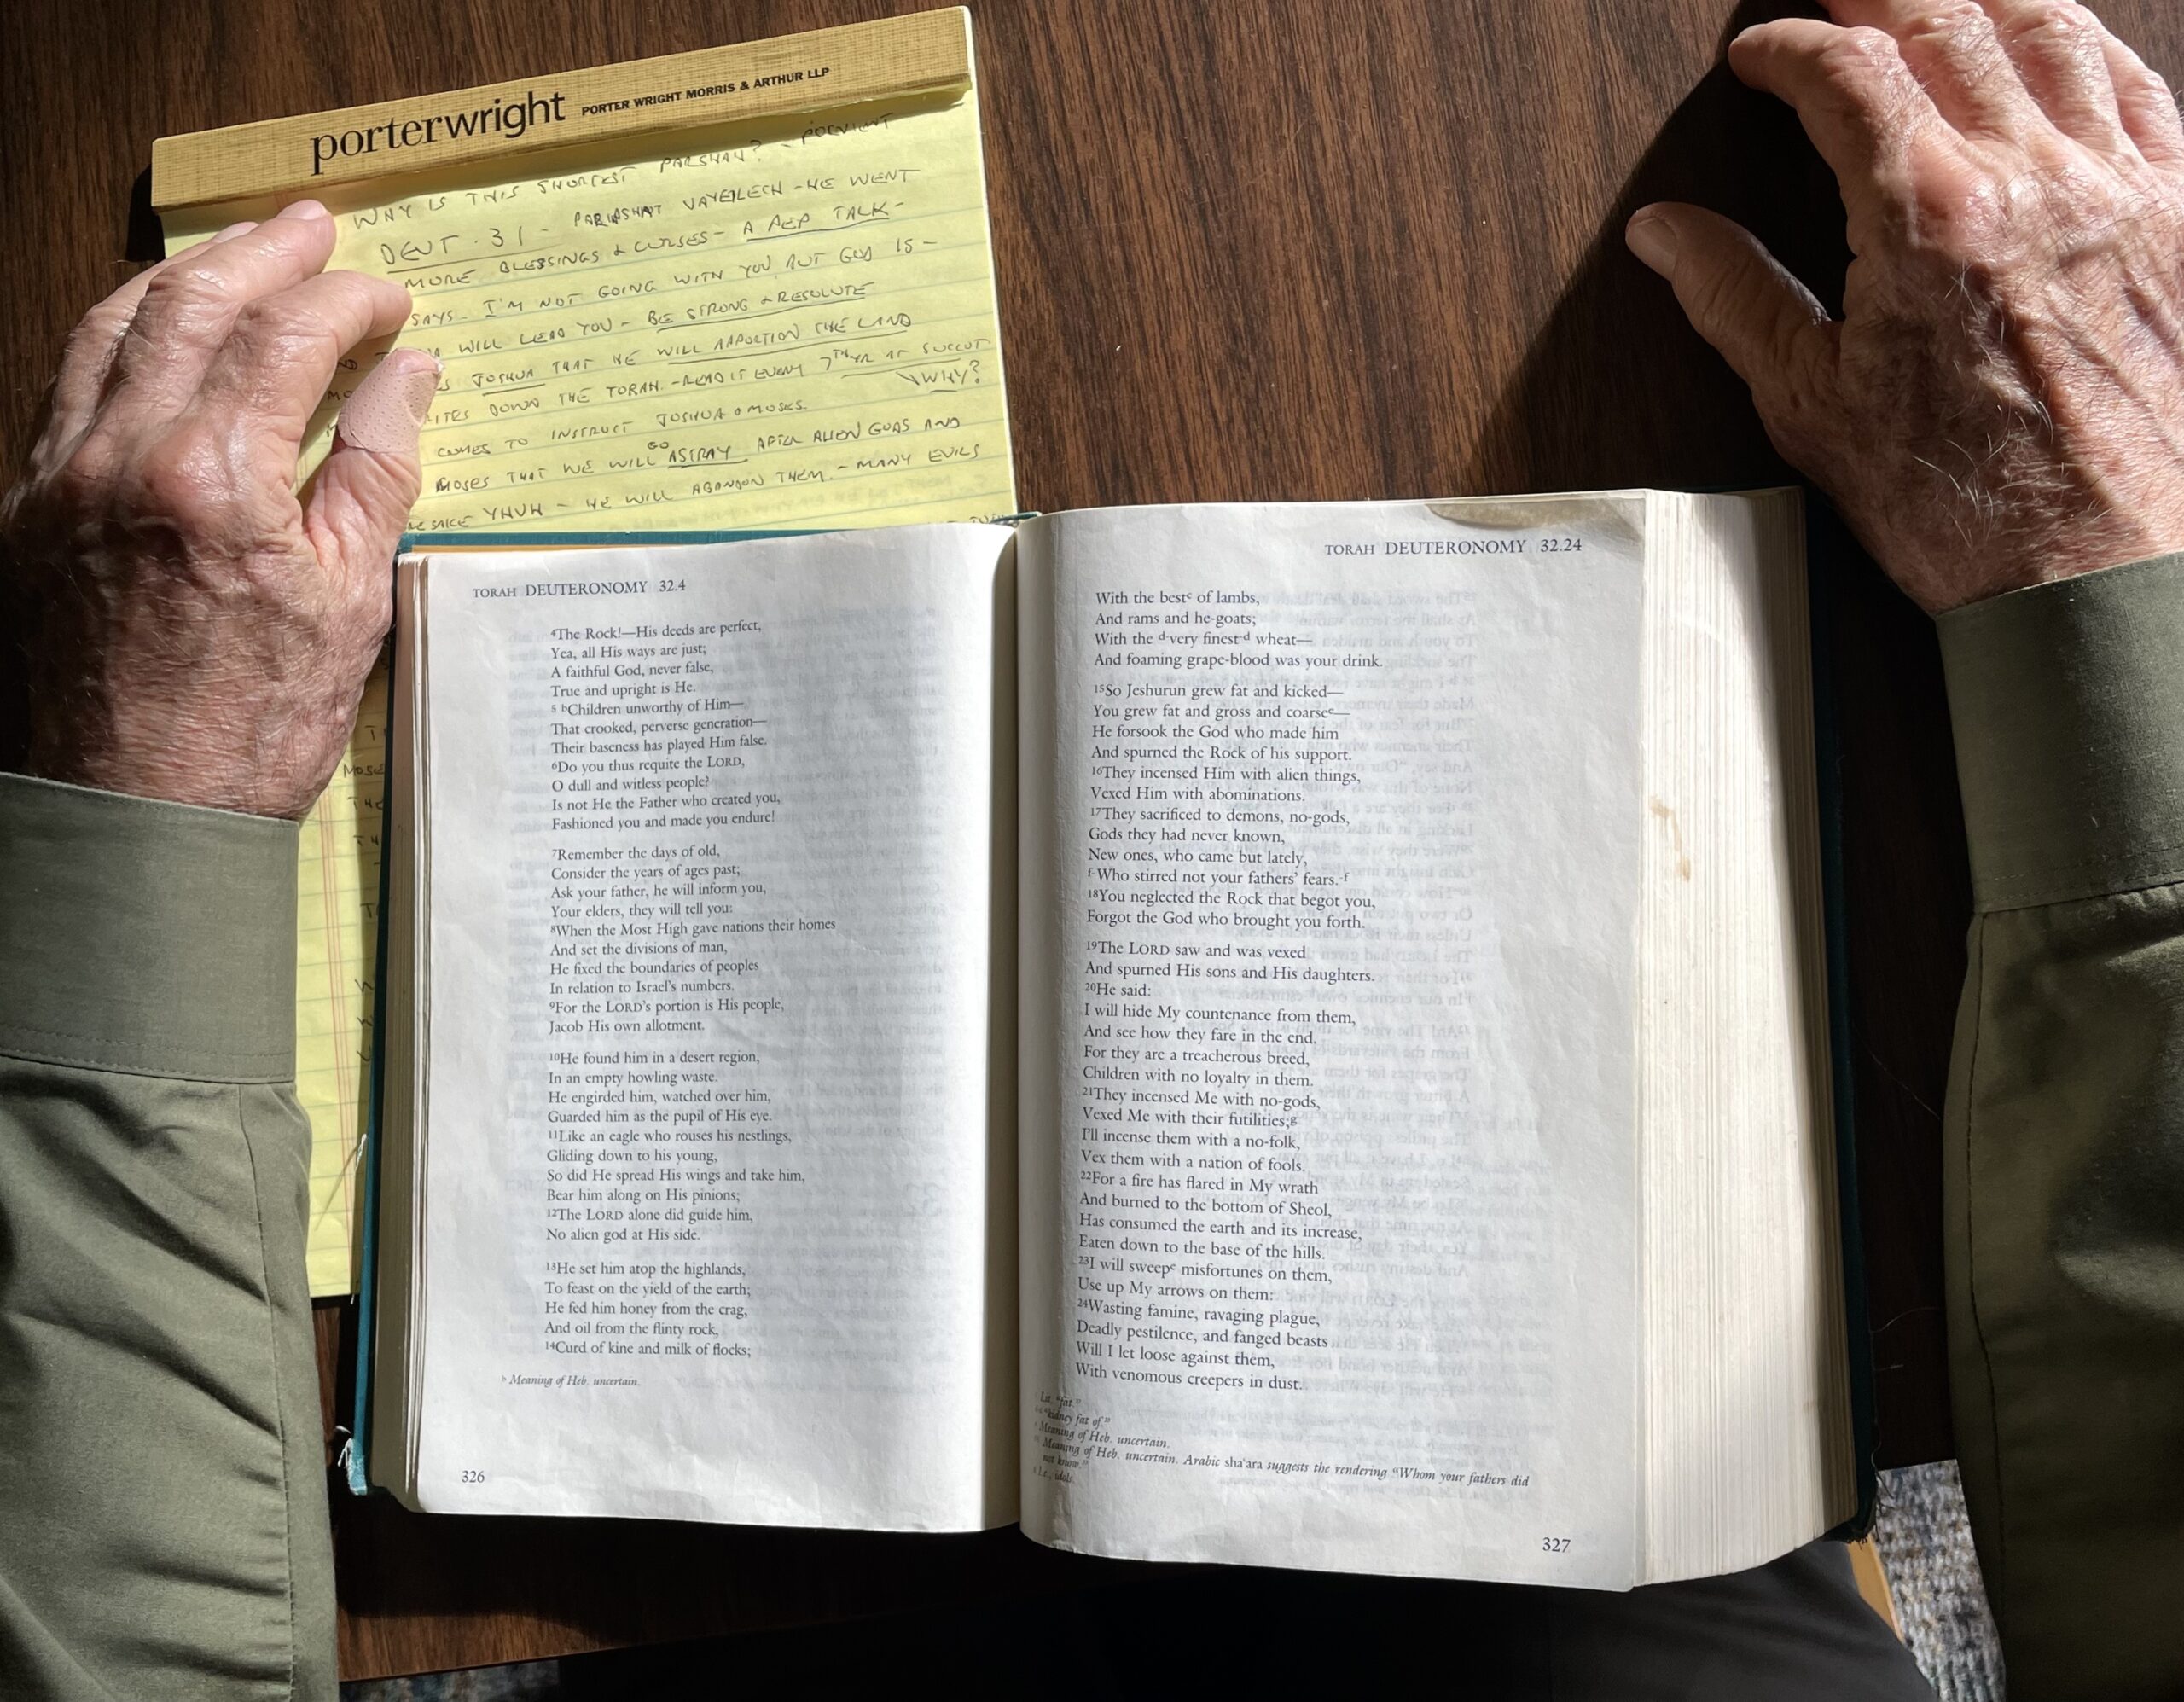 porterwright PORTER WRIGHT MORRIS & ARTHUR LLP
WHY IS THIS SHORTEST PARSHAH? -
DEUT. 31 - PARASHAT VAYEILECH - HE WENT
MORE BLESSINGS & CURSES - A PEP TALK -
SAYS - I'M NOT GOING WITH YOU BUT GOD IS -
WILL LEAD YOU - BE STRONG & RESOLUTE
JOSHUA THAT HE WILL APPORTION THE LAND
DOWN THE TORAH. - READ IT EVERY 7TH YR AT SUCCOT
WHY?
COMES TO INSTRUCT JOSHUA & MOSES.
MOSES THAT WE WILL GO ASTRAY AFTER ALIEN GODS AND
YHVH - HE WILL ABANDON THEM. - MANY EVILS
TORAH DEUTERONOMY 32.4
4The Rock!—His deeds are perfect,
Yea, all His ways are just;
A faithful God, never false,
True and upright is He.
5 bChildren unworthy of Him—
That crooked, perverse generation—
Their baseness has played Him false.
6Do you thus requite the LORD,
O dull and witless people?
Is not He the Father who created you,
Fashioned you and made you endure!
7Remember the days of old,
Consider the years of ages past;
Ask your father, he will inform you,
Your elders, they will tell you:
8When the Most High gave nations their homes
And set the divisions of man,
He fixed the boundaries of peoples
In relation to Israel's numbers.
9For the LORD's portion is His people,
Jacob His own allotment.
10He found him in a desert region,
In an empty howling waste.
He engirded him, watched over him,
Guarded him as the pupil of His eye.
11Like an eagle who rouses his nestlings,
Gliding down to his young,
So did He spread His wings and take him,
Bear him along on His pinions;
12The LORD alone did guide him,
No alien god at His side.
13He set him atop the highlands,
To feast on the yield of the earth;
He fed him honey from the crag,
And oil from the flinty rock,
14Curd of kine and milk of flocks;
b Meaning of Heb. uncertain.
326
TORAH DEUTERONOMY 32.24
With the bestc of lambs,
And rams and he-goats;
With the d-very finest-d wheat—
And foaming grape-blood was your drink.
15So Jeshurun grew fat and kicked—
You grew fat and gross and coarsee—
He forsook the God who made him
And spurned the Rock of his support.
16They incensed Him with alien things,
Vexed Him with abominations.
17They sacrificed to demons, no-gods,
Gods they had never known,
New ones, who came but lately,
f-Who stirred not your fathers' fears.-f
18You neglected the Rock that begot you,
Forgot the God who brought you forth.
19The LORD saw and was vexed
And spurned His sons and His daughters.
20He said:
I will hide My countenance from them,
And see how they fare in the end.
For they are a treacherous breed,
Children with no loyalty in them.
21They incensed Me with no-gods,
Vexed Me with their futilities;g
I'll incense them with a no-folk,
Vex them with a nation of fools.
22For a fire has flared in My wrath
And burned to the bottom of Sheol,
Has consumed the earth and its increase,
Eaten down to the base of the hills.
23I will sweepe misfortunes on them,
Use up My arrows on them:
24Wasting famine, ravaging plague,
Deadly pestilence, and fanged beasts
Will I let loose against them,
With venomous creepers in dust.
Lit. "fat."
"kidney fat of."
Meaning of Heb. uncertain.
Meaning of Heb. uncertain. Arabic sha'ara suggests the rendering "Whom your fathers did
not know."
I.e., idols.
327